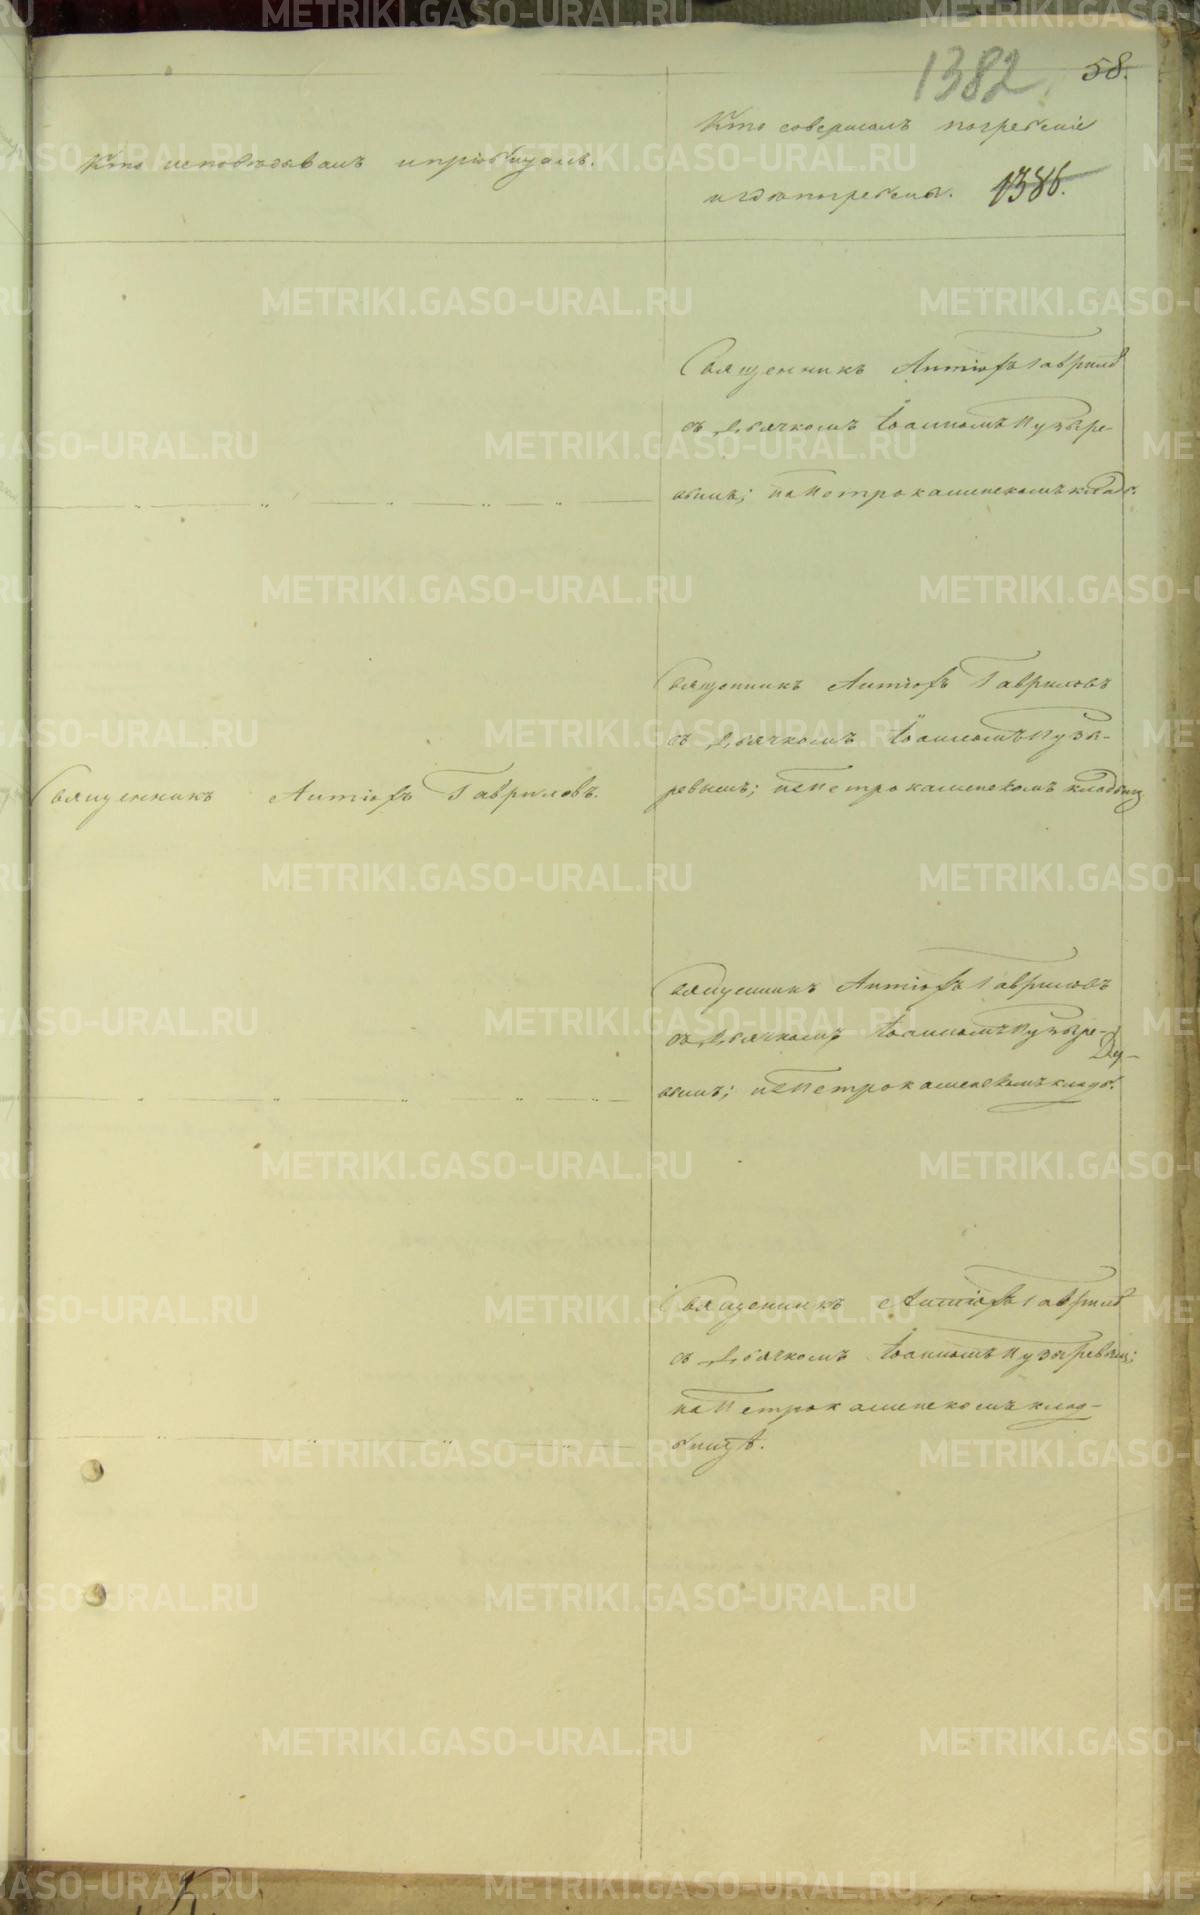 1382
58.
Кто исповѣдывалъ и пріобщалъ.
Кто совершалъ погребеніе
и гдѣ погребены.
1386.
Священникъ Антіохъ Гаврилов
съ Дьячкомъ Іоанномъ Пузыре-
вымъ; на Петрокаменскомъ кладб.
Священникъ Антіохъ Гавриловъ
съ Дьячкомъ Іоанномъ Пузы-
ревымъ; на Петрокаменскомъ кладбищ
Священникъ Антіохъ Гавриловъ.
Священникъ Антіохъ Гавриловъ
съ Дьячкомъ Іоанномъ Пузыре-
вымъ; на Петрокаменскомъ кладб.
Священникъ Антіохъ Гаврилов
съ Дьячкомъ Іоанномъ Пузыревым;
на Петрокаменскомъ клад-
бищѣ.
METRIKI.GASO-URAL.RU